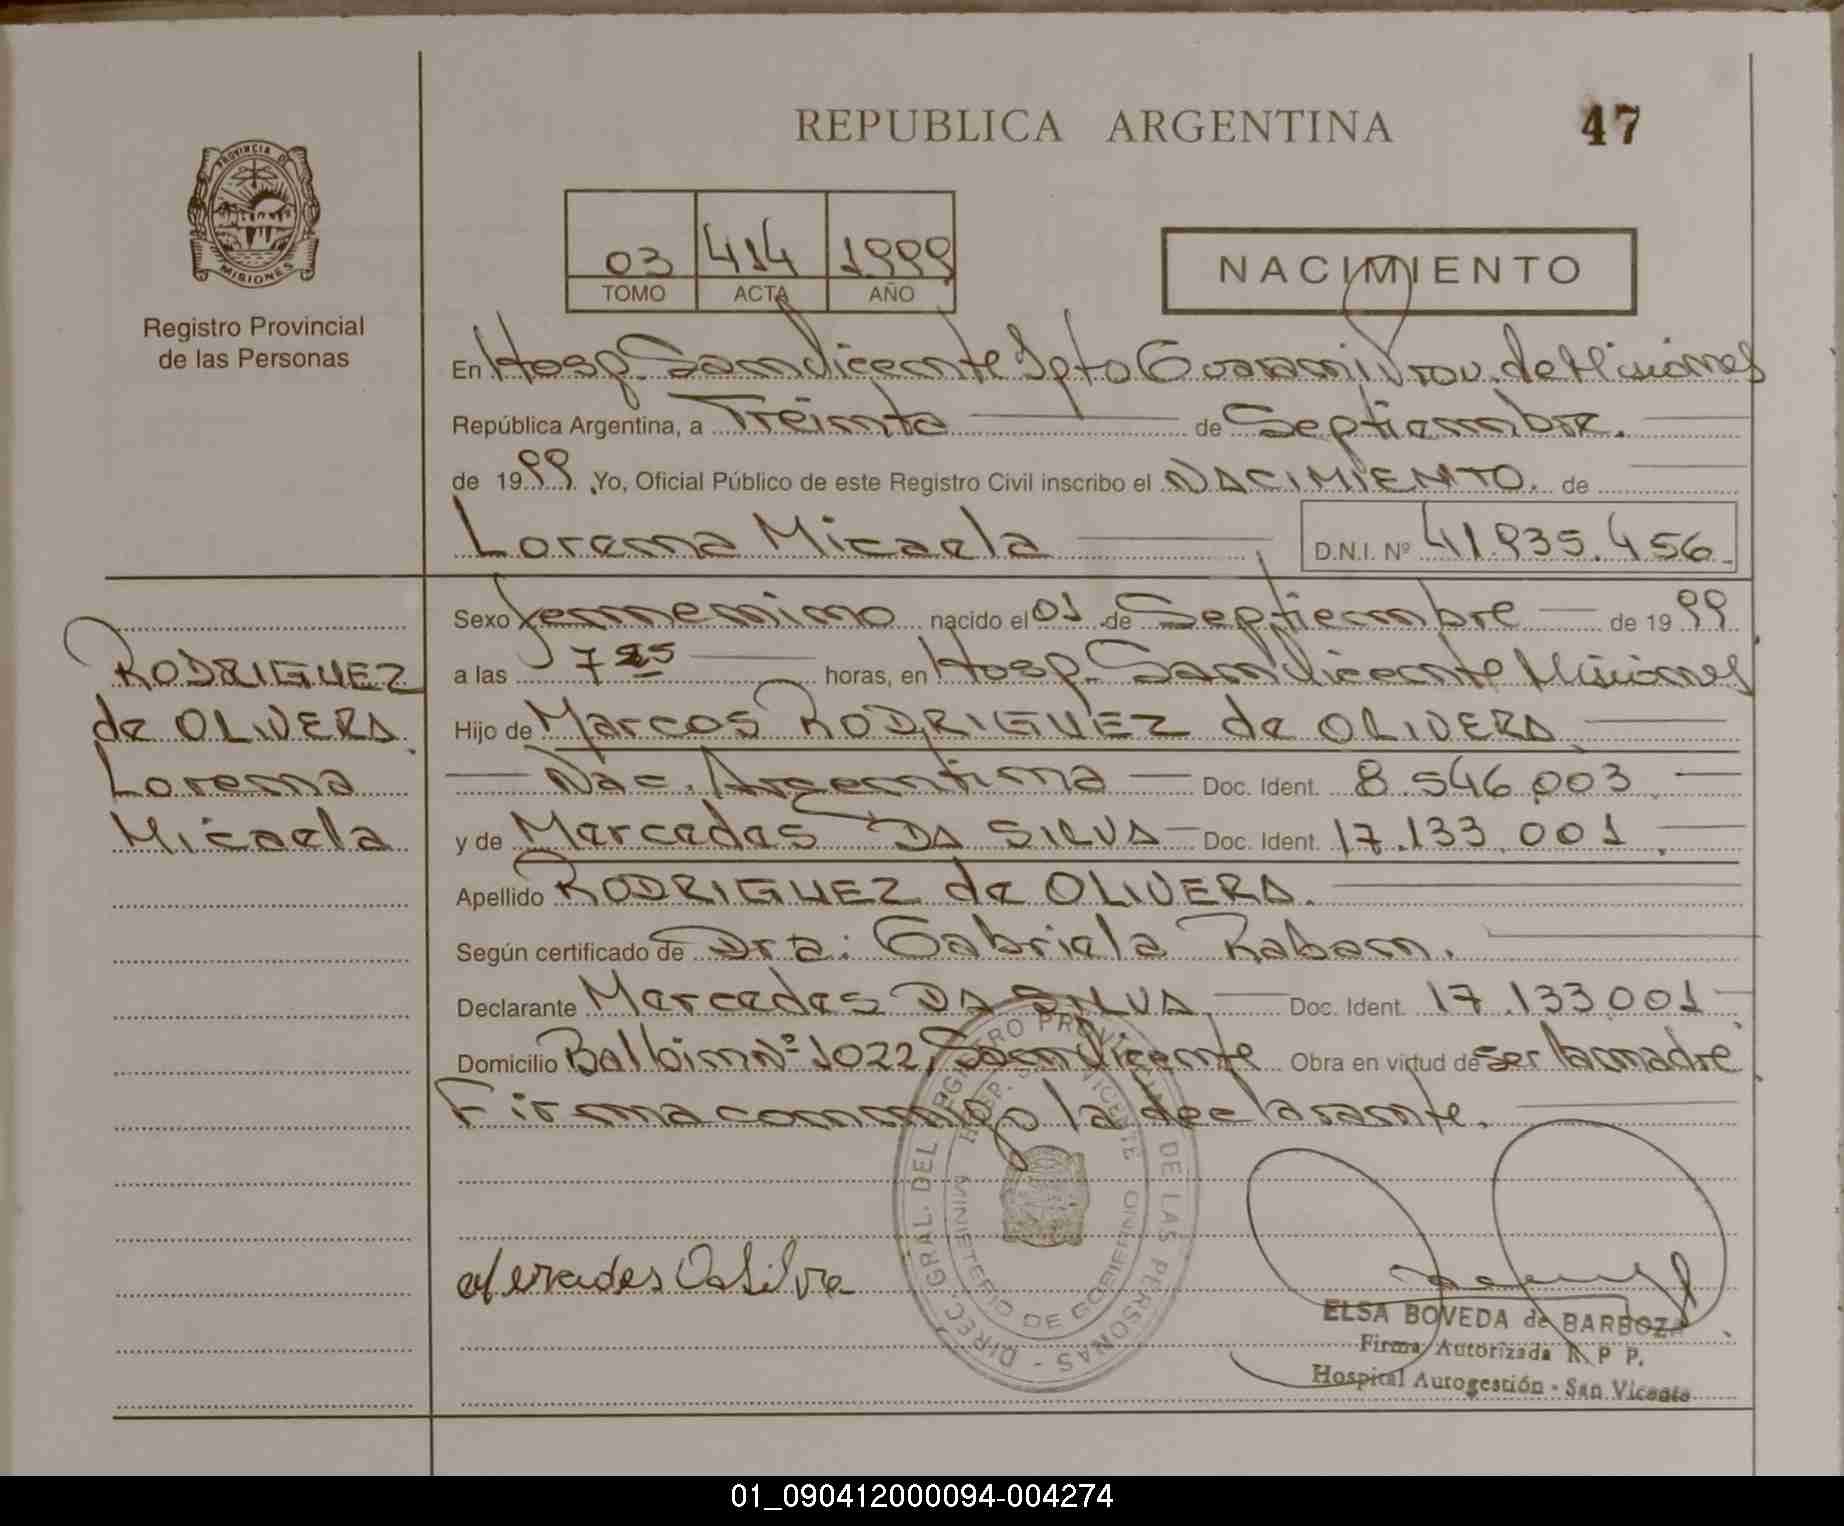 REPUBLICA ARGENTINA
47
PROVINCIA DE
MISIONES
Registro Provincial
de las Personas
03 414 1999
TOMO ACTA AÑO
NACIMIENTO
En Hosp. San Vicente Dpto Guaraní Prov. de Misiones
República Argentina, a Treinta de Septiembre.
de 1999. Yo, Oficial Público de este Registro Civil inscribo el NACIMIENTO. de
Lorena Micaela
D.N.I. Nº 41.935.456
RODRIGUEZ
de OLIVERA
Lorena
Micaela
Sexo femenino nacido el 01 de Septiembre de 1999
a las 7 25 horas, en Hosp. San Vicente Misiones
Hijo de Marcos RODRIGUEZ de OLIVERA
Nac. Argentina Doc. Ident. 8.546.003
y de Mercedes DA SILVA Doc. Ident. 17.133.001
Apellido RODRIGUEZ de OLIVERA.
Según certificado de Dra. Gabriela Raban.
Declarante Mercedes DA SILVA Doc. Ident. 17.133.001
Domicilio Balbin Nº 1022, San Vicente Obra en virtud de ser la madre
Firma conmigo la declarante.
DIREC. GRAL. DEL REGISTRO PROVINCIAL DE LAS PERSONAS
MINISTERIO DE GOBIERNO
VICENTE
Mercedes Da Silva
ELSA BOVEDA de BARBOZA
Firma Autorizada R. P P.
Hospital Autogestión - San Vicente
01_090412000094-004274